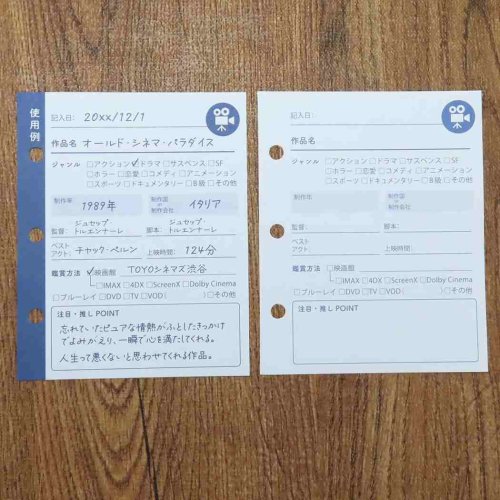 使用例
記入日: 20xx/12/1
作品名 オールド・シネマ・パラダイス
ジャンル □アクション ☑ドラマ □サスペンス □SF
□ホラー □恋愛 □コメディ □アニメーション
□スポーツ □ドキュメンタリー □B級 □その他
制作年 1989年 制作国 or 制作会社 イタリア
監督: ジュセップ トルエンナーレ 脚本: ジュセップ トルエンナーレ
ベスト アクト: チャック・ペルン 上映時間: 124分
鑑賞方法 ☑映画館 TOYOシネマズ渋谷
□IMAX □4DX □ScreenX □Dolby Cinema
□ブルーレイ □DVD □TV □VOD( ) □その他
注目・推しPOINT
忘れていたピュアな情熱がふとしたきっかけ
でよみがえり、一瞬で心を満たしてくれる。
人生って悪くないと思わせてくれる作品。
記入日:
作品名
ジャンル □アクション □ドラマ □サスペンス □SF
□ホラー □恋愛 □コメディ □アニメーション
□スポーツ □ドキュメンタリー □B級 □その他
制作年 制作国 or 制作会社
監督: 脚本:
ベスト アクト: 上映時間:
鑑賞方法 □映画館
□IMAX □4DX □ScreenX □Dolby Cinema
□ブルーレイ □DVD □TV □VOD( ) □その他
注目・推しPOINT